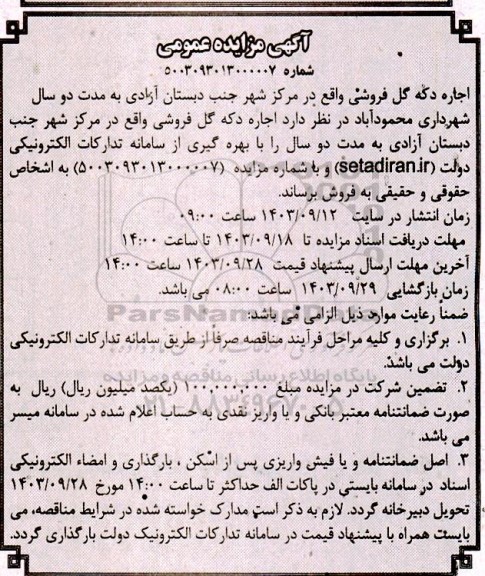 آگهی مزایده عمومی
شماره ۵۰۰۳۰۹۳۰۱۳۰۰۰۰۰۷
اجاره دکه گل فروشی واقع در مرکز شهر جنب دبستان آزادی به مدت دو سال
شهرداری محمودآباد در نظر دارد اجاره دکه گل فروشی واقع در مرکز شهر جنب
دبستان آزادی به مدت دو سال را با بهره گیری از سامانه تدارکات الکترونیکی
دولت (setadiran.ir) و با شماره مزایده (۵۰۰۳۰۹۳۰۱۳۰۰۰۰۰۷) به اشخاص
حقوقی و حقیقی به فروش برساند.
زمان انتشار در سایت ۱۴۰۳/۰۹/۱۲ ساعت ۰۹:۰۰
مهلت دریافت اسناد مزایده تا ۱۴۰۳/۰۹/۱۸ تا ساعت ۱۴:۰۰
آخرین مهلت ارسال پیشنهاد قیمت ۱۴۰۳/۰۹/۲۸ ساعت ۱۴:۰۰
زمان بازگشایی ۱۴۰۳/۰۹/۲۹ ساعت ۰۸:۰۰ می باشد.
ضمناً رعایت موارد ذیل الزامی می باشد:
ParsNamadData
۱. برگزاری و کلیه مراحل فرآیند مناقصه صرفاً از طریق سامانه تدارکات الکترونیکی
دولت می باشد.
پایگاه اطلاع رسانی مناقصه و مزایده
۲. تضمین شرکت در مزایده مبلغ ۱۰۰.۰۰۰.۰۰۰ (یکصد میلیون ریال) ریال به
۰۲۱-۸۸۳۴۹۶۷۰-۵
صورت ضمانتنامه معتبر بانکی و یا واریز نقدی به حساب اعلام شده در سامانه میسر
می باشد.
۳. اصل ضمانتنامه و یا فیش واریزی پس از اسکن ، بارگذاری و امضاء الکترونیکی
اسناد در سامانه بایستی در پاکات الف حداکثر تا ساعت ۱۴:۰۰ مورخ ۱۴۰۳/۰۹/۲۸
تحویل دبیرخانه گردد. لازم به ذکر است مدارک خواسته شده در شرایط مناقصه، می
بایست همراه با پیشنهاد قیمت در سامانه تدارکات الکترونیک دولت بارگذاری گردد.